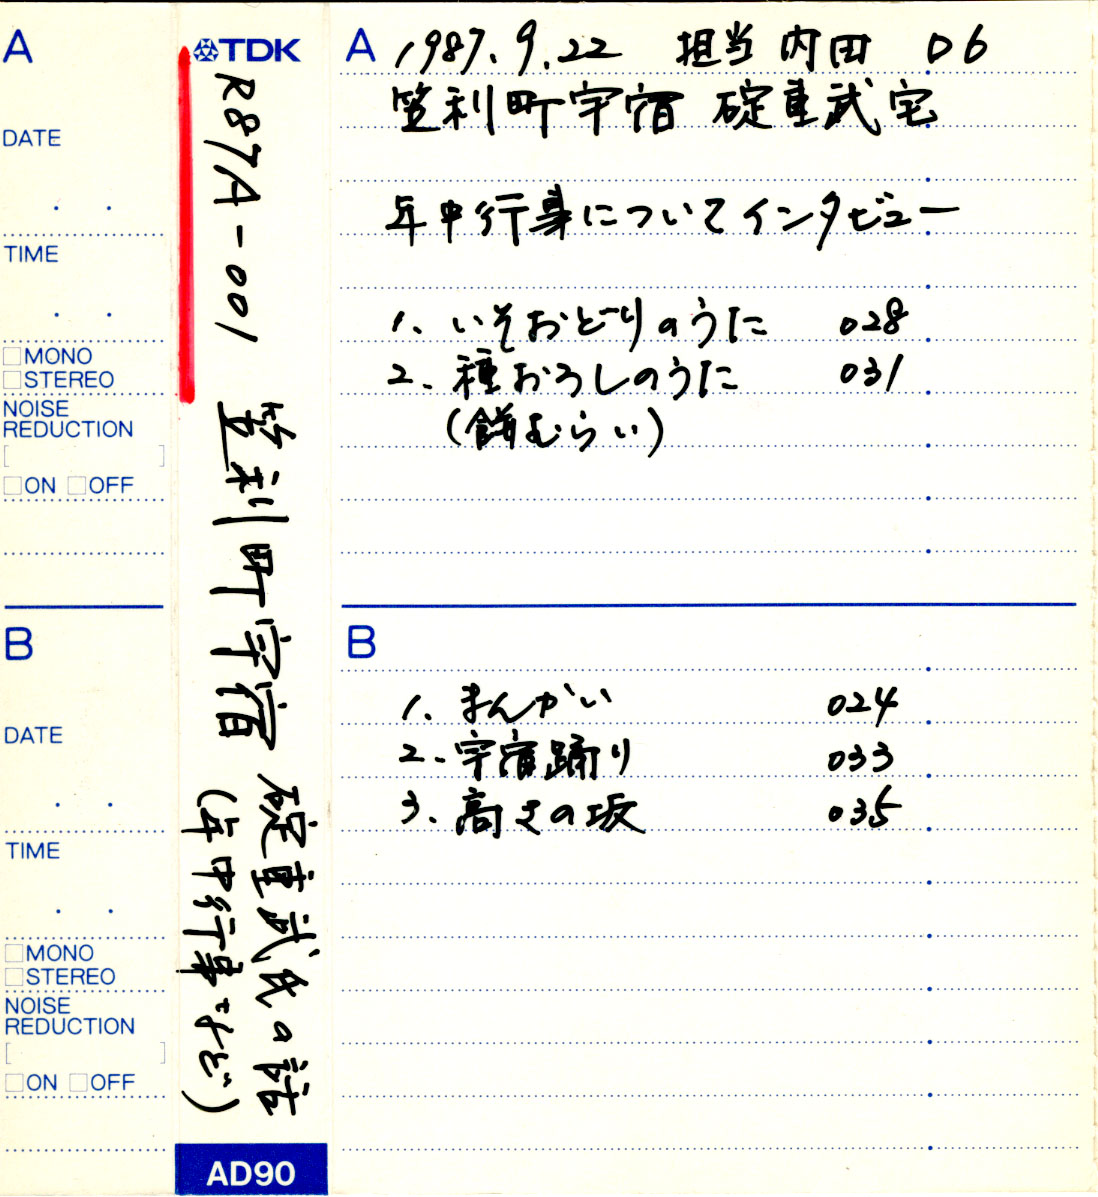 A
DATE
. .
TIME
. .
□MONO
□STEREO
NOISE
REDUCTION
[ ]
□ON □OFF
B
DATE
. .
TIME
. .
□MONO
□STEREO
NOISE
REDUCTION
[ ]
□ON □OFF
TDK
R87A-001 笠利町宇宿 碇重武氏の話
(年中行事など)
AD90
A 1987.9.22 担当 内田 06
笠利町宇宿 碇重武宅
年中行事についてインタビュー
1. いそおどりのうた 028
2. 種おろしのうた 031
(餅むらい)
B
1. まんかい 024
2. 宇宿踊り 033
3. 高きの坂 035